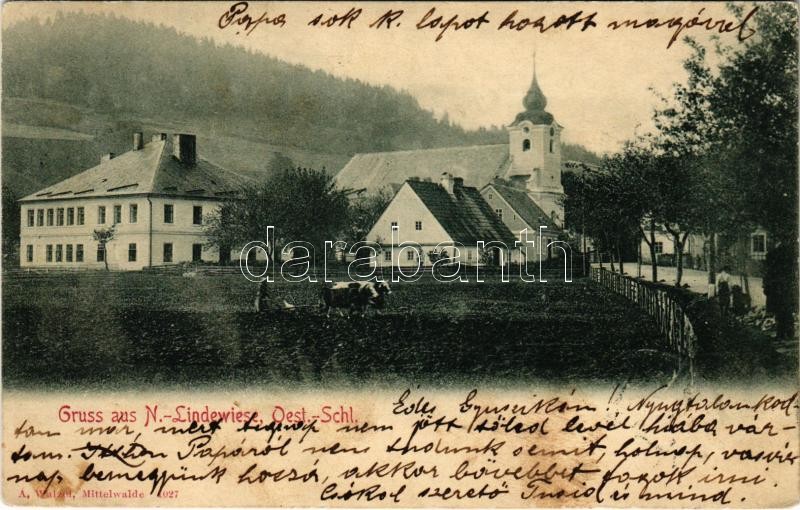 Papa sok k. lapot hozott magával
darabanth
Gruss aus N.-Lindewiese, Oest.-Schl.
Édes Gyuszikám! Nyugtalankod-
tam már, mert tegnap nem jött tőled levél hiába vár-
tam. Papáról nem tudunk semmit, holnap, vasár
nap bemegyünk hozzá, akkor bővebbet fogok írni.
Csókol szerető
A, Walzel, Mittelwalde 1027